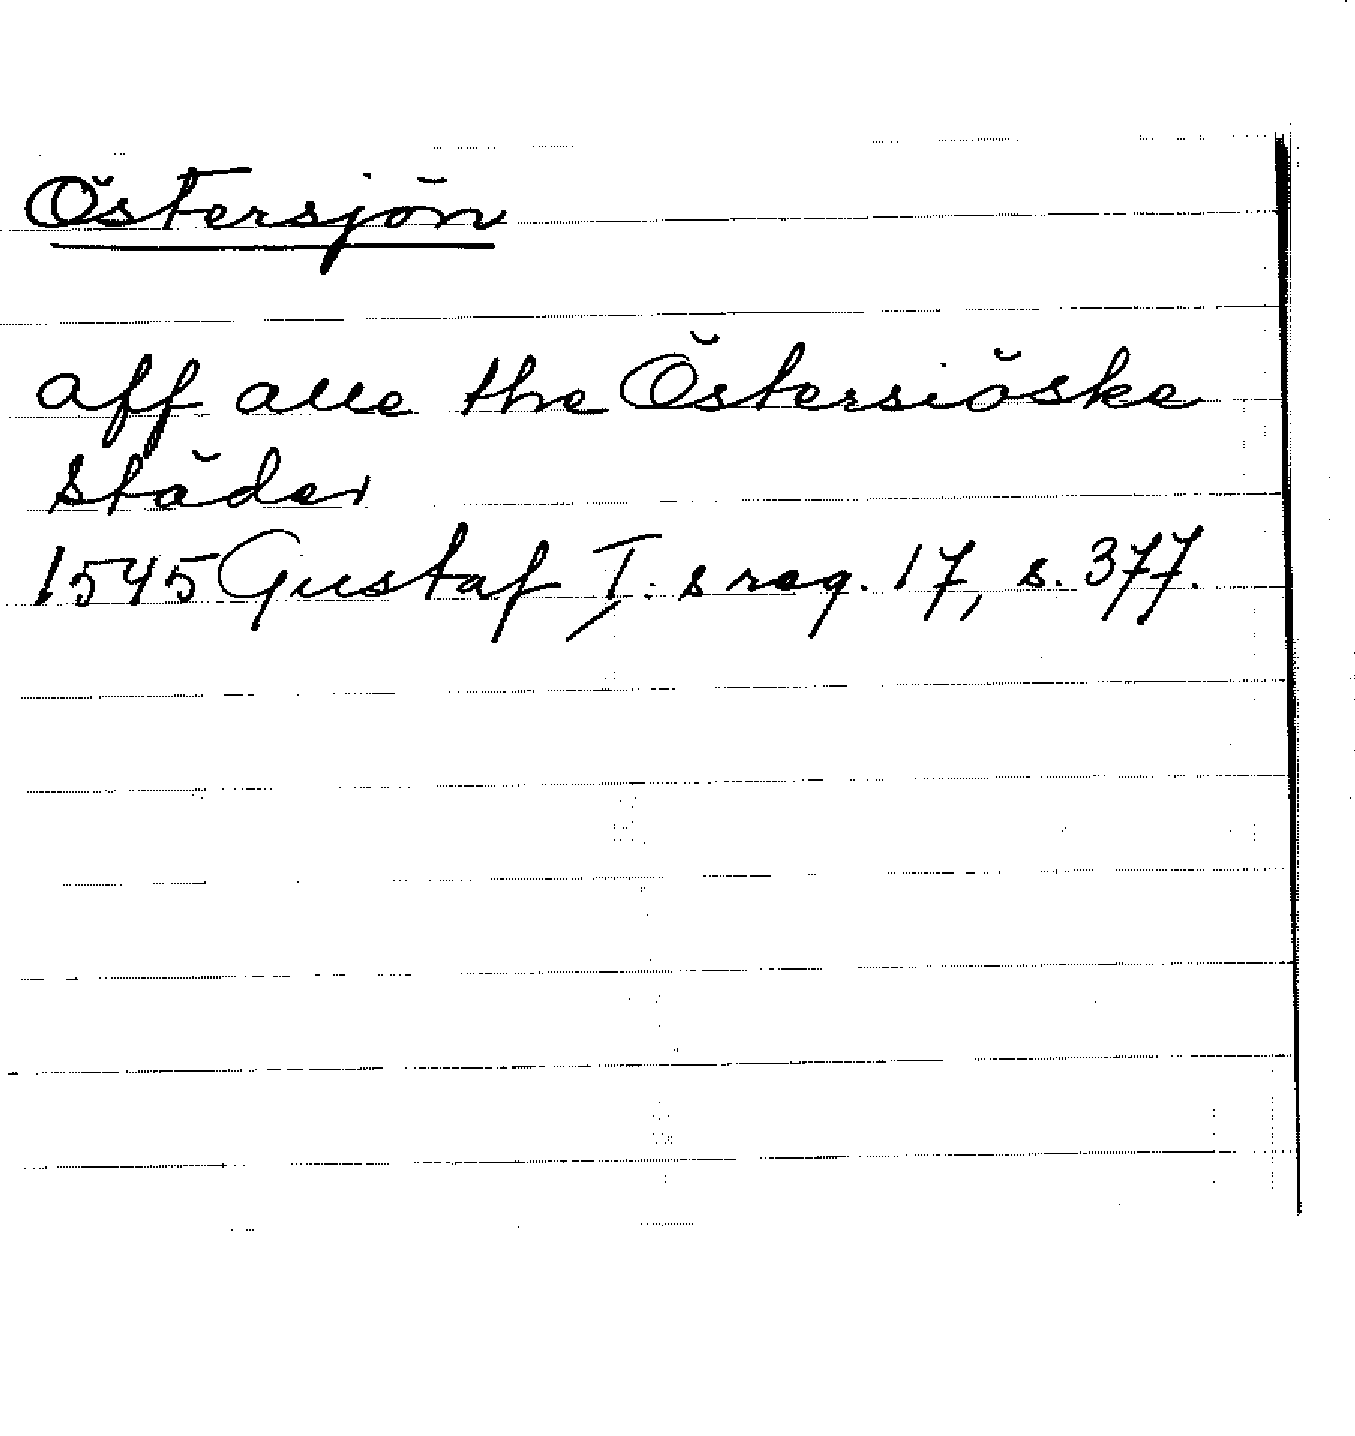 Östersjön
aff alle the Östersiöske
städer
1545 Gustaf I:s reg. 17, s. 377.